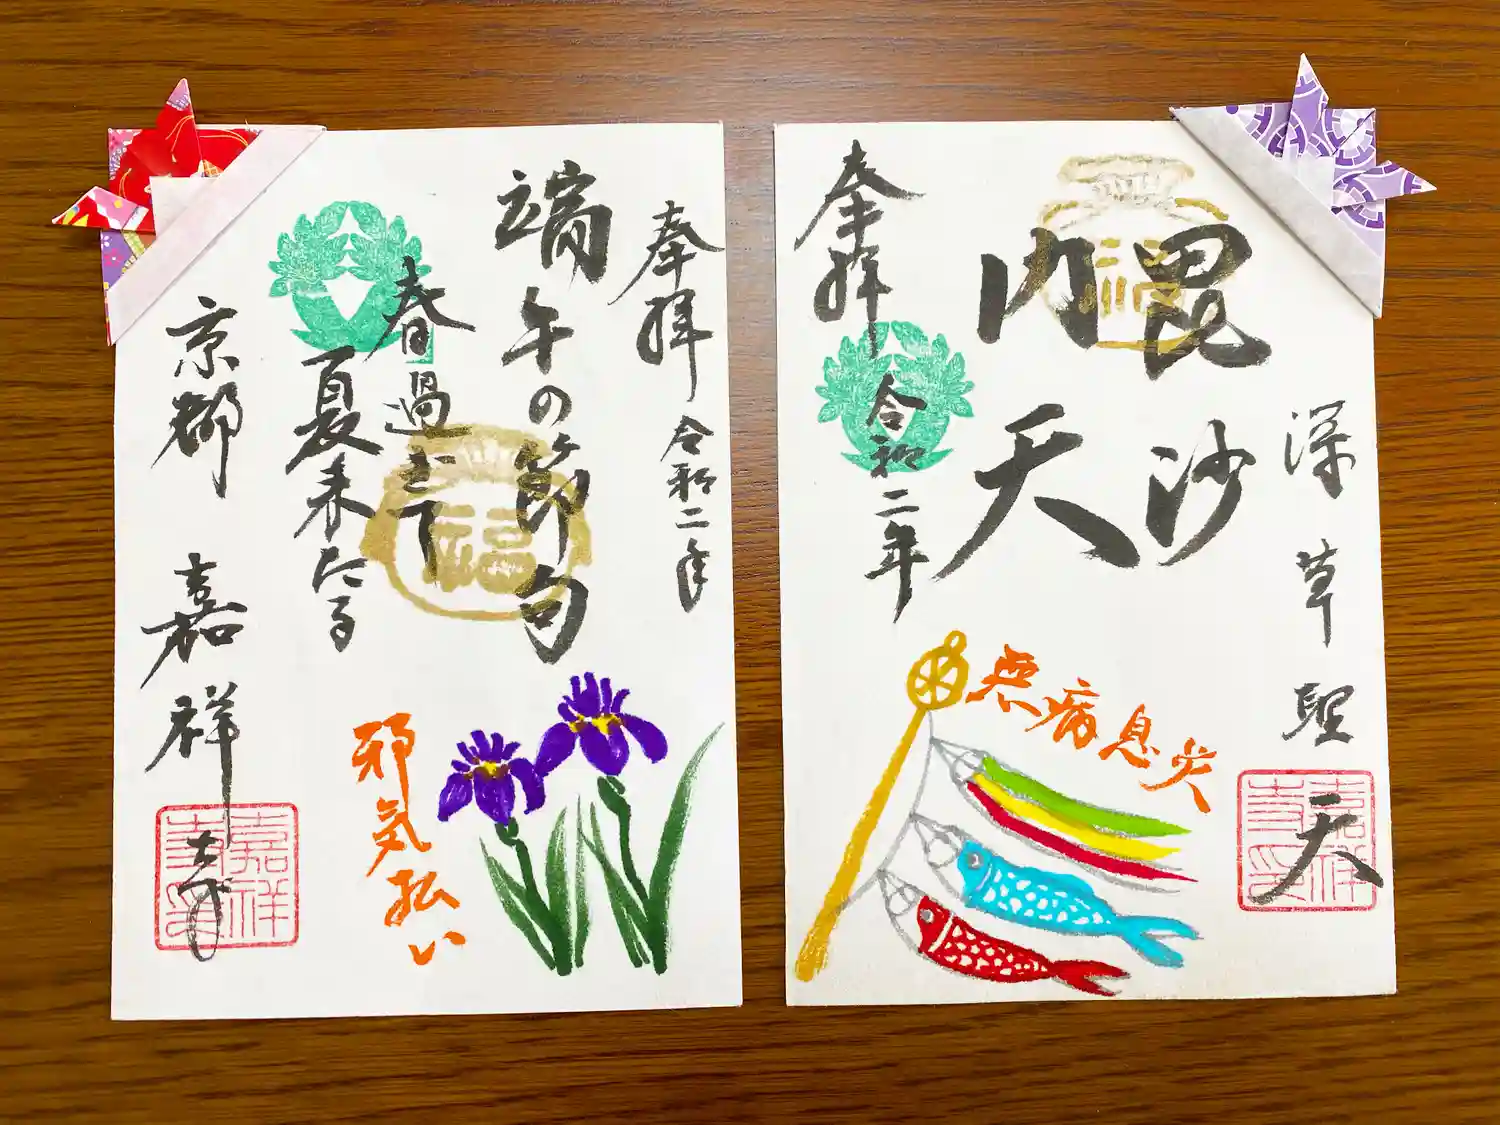 奉拝 令和二年
端午の節句
春過ぎて
夏来たる
福
京都 嘉祥寺
邪気払い
嘉祥寺印
深草聖天
毘沙
門天
福
奉拝 令和二年
無病息災
嘉祥寺印